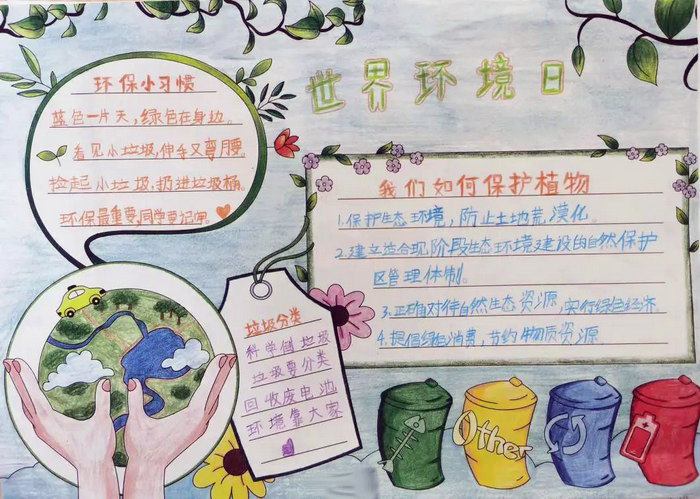 世界环境日
环保小习惯
蓝色一片天，绿色在身边。
看见小垃圾，伸手又弯腰。
捡起小垃圾，扔进垃圾桶。
环保最重要，同学要记牢。
我们如何保护植物
1.保护生态环境，防止土地荒漠化。
2.建立适合现阶段生态环境建设的自然保护
区管理体制。
3.正确对待自然生态资源，实行绿色经济
4.提倡绿色消费，节约物质资源
垃圾分类
科学倒垃圾
垃圾要分类
回收废电池
环境靠大家
Other